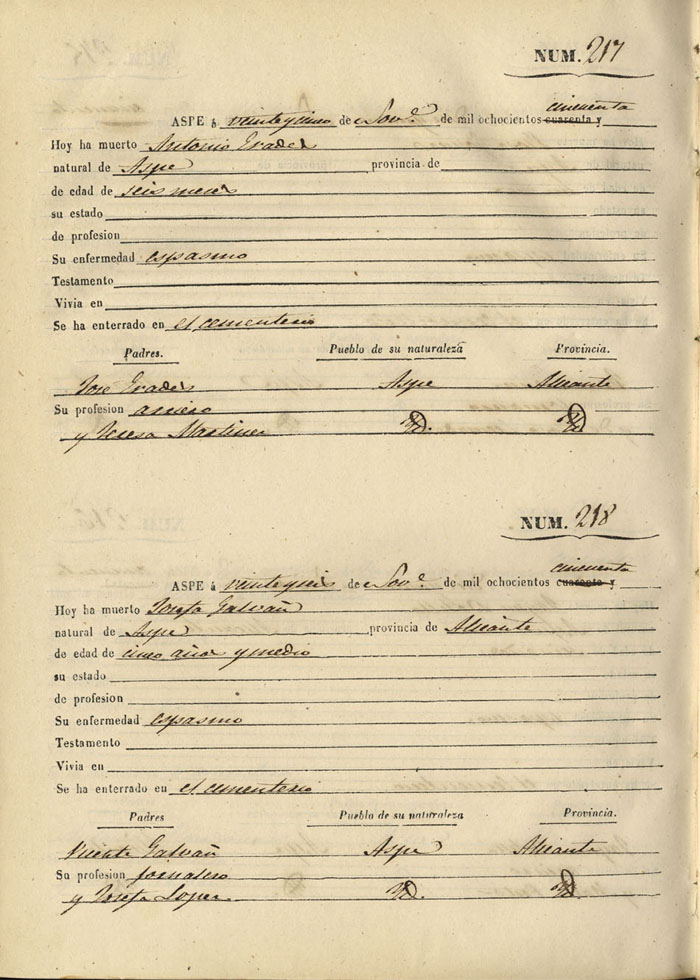 NUM. 217
cincuenta
ASPE á veinteycinco de Nov.e de mil ochocientos cuarenta y
Hoy ha muerto Antonio Erades
natural de Aspe provincia de
de edad de seis meses
su estado
de profesion
Su enfermedad espasmo
Testamento
Vivia en
Se ha enterrado en el cementerio
Padres. Pueblo de su naturaleza Provincia.
José Erades Aspe Alicante
Su profesion arriero
y Teresa Martinez Yd. Yd.
NUM. 218
cincuenta
ASPE á veinteyseis de Nov.e de mil ochocientos cuarenta y
Hoy ha muerto Josefa Galvañ
natural de Aspe provincia de Alicante
de edad de cinco años y medio
su estado
de profesion
Su enfermedad espasmo
Testamento
Vivia en
Se ha enterrado en el cementerio
Padres Pueblo de su naturaleza Provincia.
Vicente Galvañ Aspe Alicante
Su profesion jornalero
y Josefa Lopez Yd. Yd.